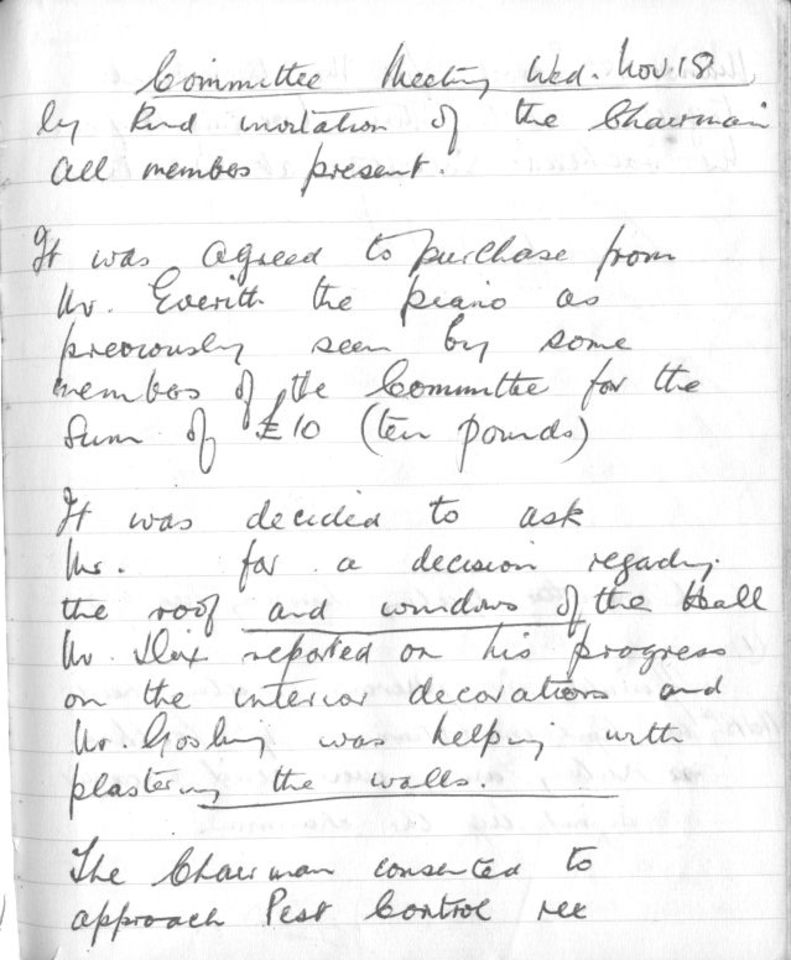 Committee Meeting Wed. Nov. 18
by kind invitation of the Chairman
All members present.
It was agreed to purchase from
Mr. Everitt the piano as
previously seen by some
members of the Committee for the
Sum of £10 (ten pounds)
It was decided to ask
Mr. for a decision regarding
the roof and windows of the Hall
Mr. Dix reported on his progress
on the interior decorations and
Mr. Gosling was helping with
plastering the walls.
The Chairman consented to
approach Pest Control ree